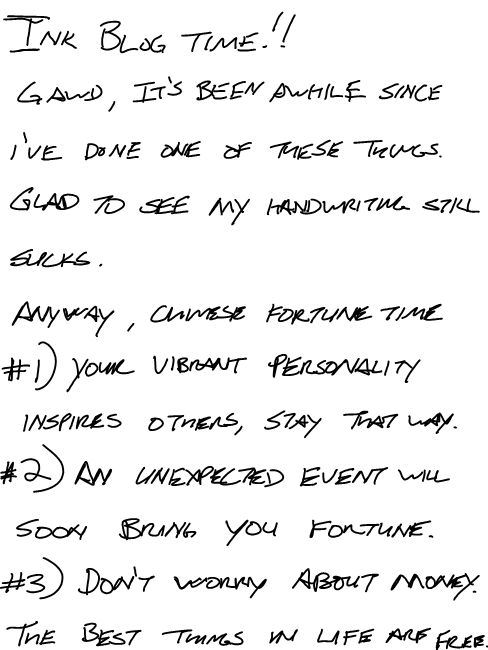 INK BLOG TIME!!
GAWD, IT'S BEEN AWHILE SINCE
I'VE DONE ONE OF THESE THINGS.
GLAD TO SEE MY HANDWRITING STILL
SUCKS.
ANYWAY, CHINESE FORTUNE TIME
#1) YOUR VIBRANT PERSONALITY
INSPIRES OTHERS, STAY THAT WAY.
#2) AN UNEXPECTED EVENT WILL
SOON BRING YOU FORTUNE.
#3) DON'T WORRY ABOUT MONEY.
THE BEST THINGS IN LIFE ARE FREE.